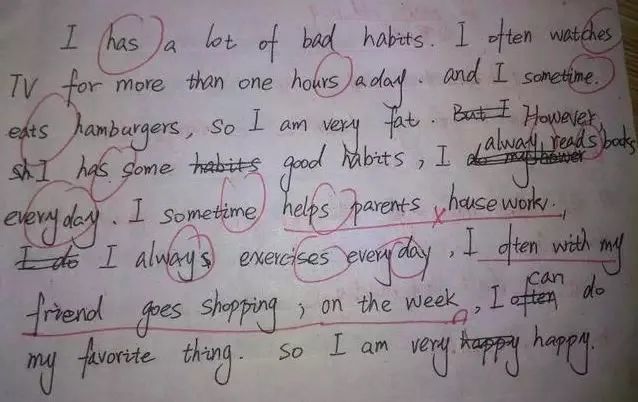 I has a lot of bad habits. I often watches
TV for more than one hours a day. and I sometime.
eats hamburgers, so I am very fat. But I However,
sh I has some habits good habits, I do my always reads books
everyday. I sometime helps parents housework.,
I do I always exercises everyday, I often with my
friend goes shopping, on the week, I often can do
my favorite thing. so I am very happy happy.